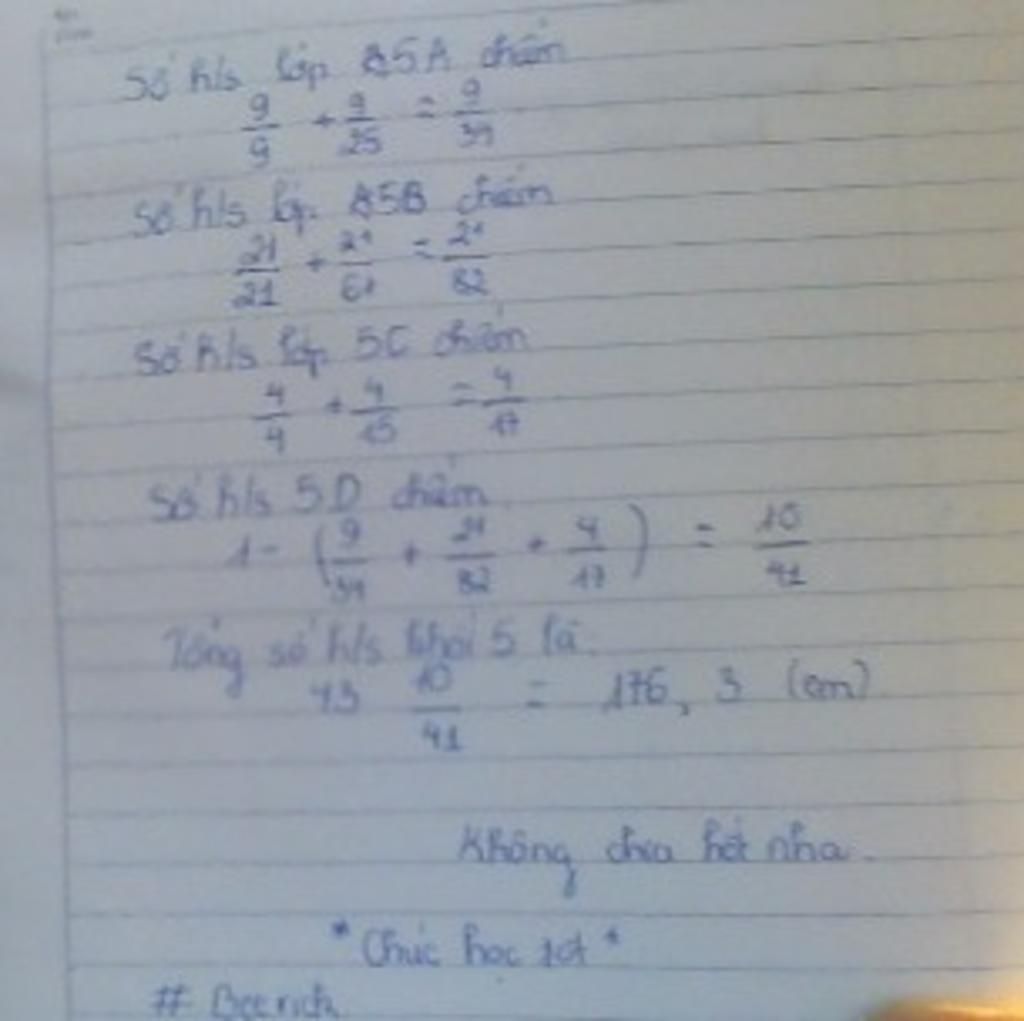 Số h/s lớp 5A chiếm
9/9 + 9/25 = 9/34
Số h/s lớp 5B chiếm
21/21 + 21/61 = 21/82
Số h/s lớp 5C chiếm
4/4 + 4/15 = 4/17
Số h/s 5D chiếm
1 - (9/34 + 21/82 + 4/17) = 10/41
Tổng số h/s khối 5 là.
43 10/41 = 176, 3 (em)
Không chia hết nha.
* Chúc học tốt *